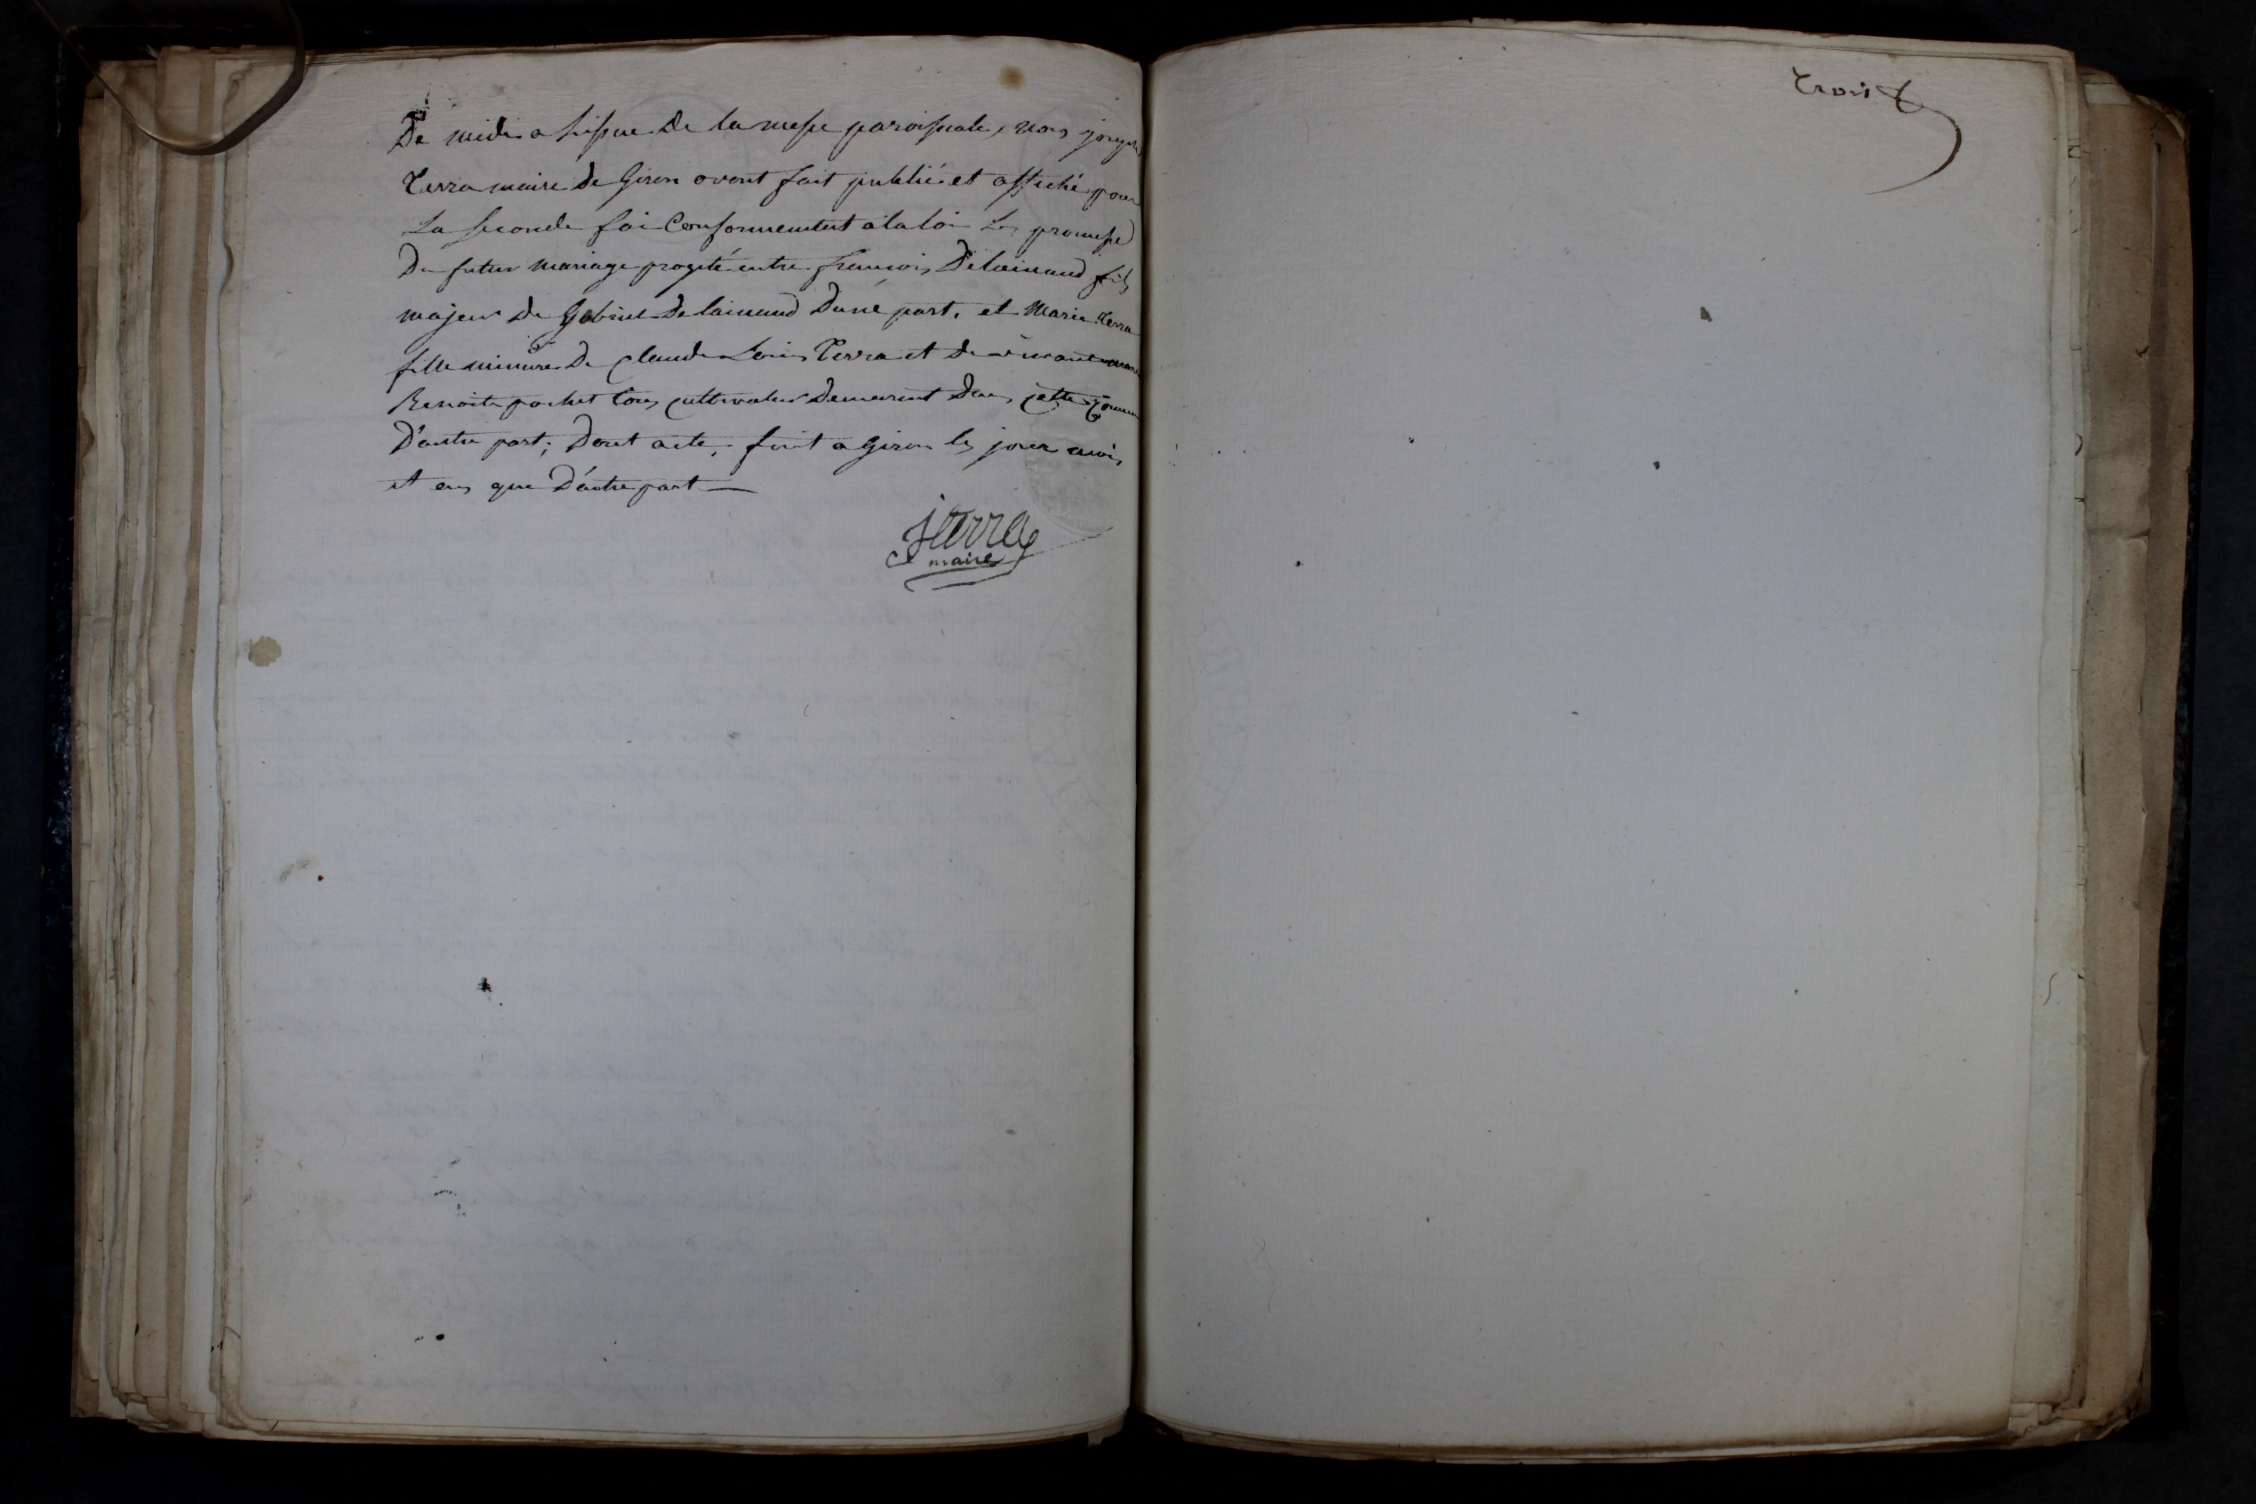 De midi a lissue de la messe paroissiale, nous joseph
Terra maire de Giron avont fait publié et affiché pour
La seconde foi Conformement a la loi Les promesse
De futur mariage progeté entre francois Delainaud fils
majeur de Gabriel Delainaud Dune part, et Marie Terra
fille mineure De claude Louis Terra et de
Benoite pochet tous cultivateur Demeurent Dans cette Commune
D'autre part; Dont acte, fait a Giron les jour mois
et ans que D'autre part
jterra
maire
Trois